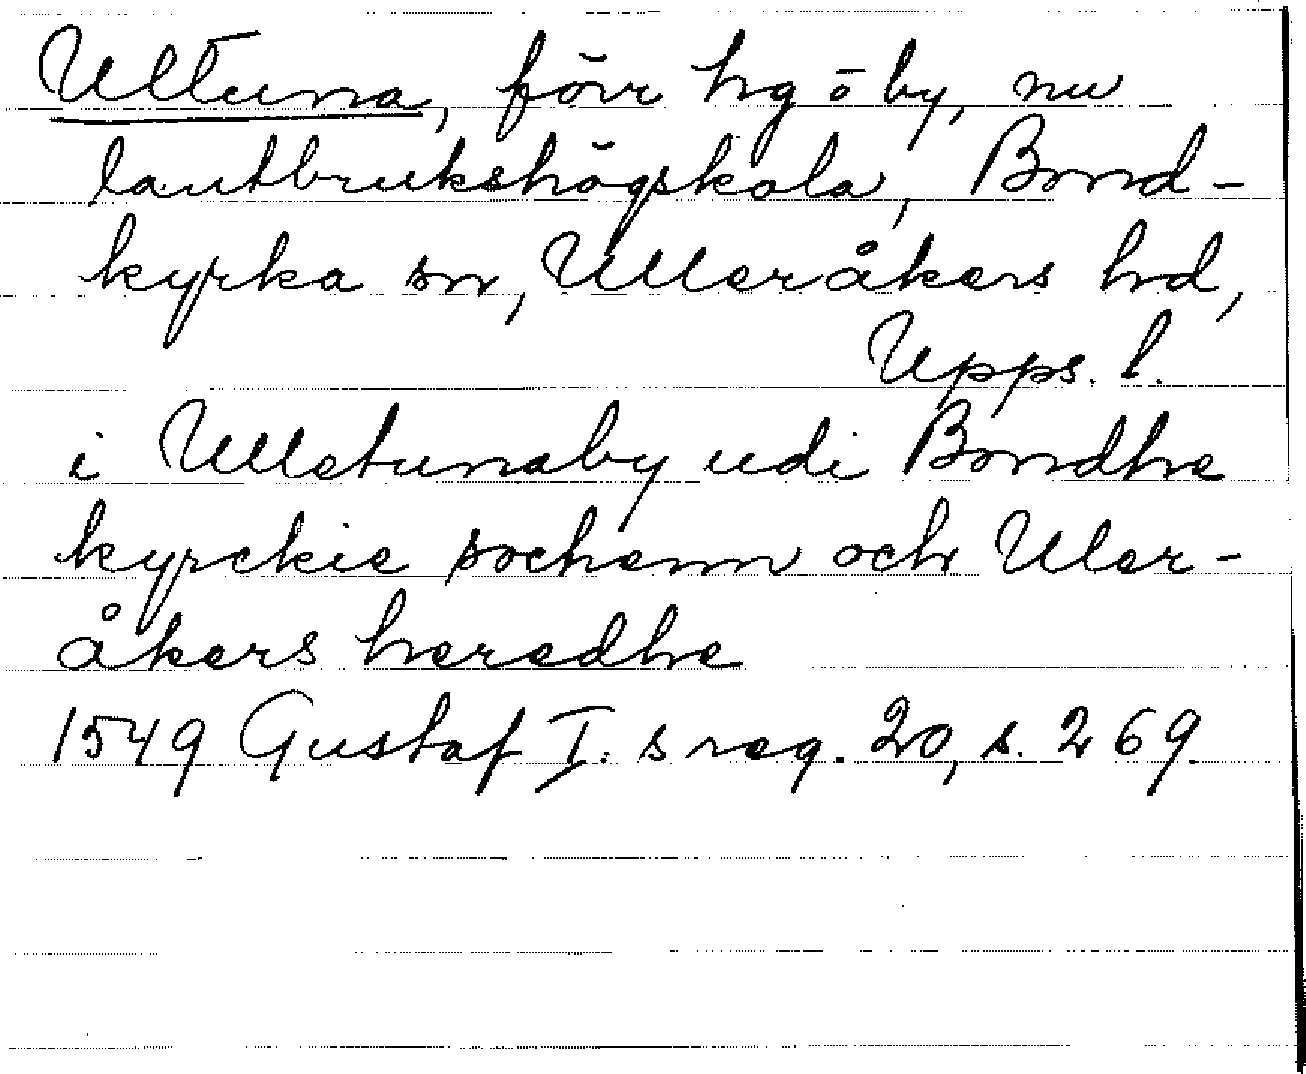 Ultuna, förr hg o by, nu
lantbrukshögskola, Bond-
kyrka sn, Ulleråkers hd,
Upps. l.
i Ulletunaby udi Bondhe
kyrckie sochenn och Uler-
åkers heredhe
1549 Gustaf I:s reg. 20, s. 269.